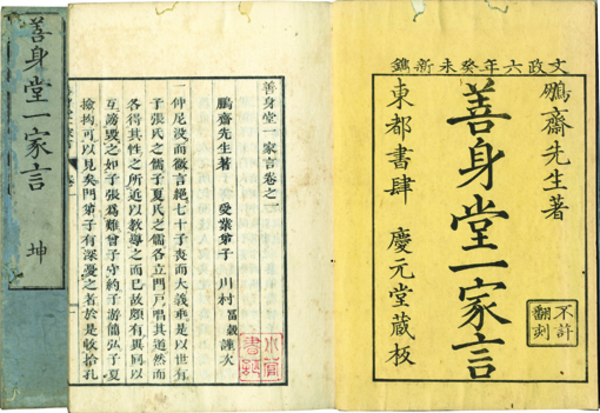 文政六年癸未新鐫
鵬齋先生著
善身堂一家言
不許
翻刻
東都書肆 慶元堂蔵板
善身堂一家言卷之一
鵬齋先生著 受業弟子 川村 謹次
一仲尼没而微言絕七十子喪而大義乖是以世有
子張氏之儒子夏氏之儒各立門戸唱其道然而
各得其性之所近以教導之而已故頗有異同以
互謗毀之如子張爲難曾子守約子游 弘子夏
撿拘可以見矣門弟子有深憂之者於是收拾孔
善身堂一家言 坤